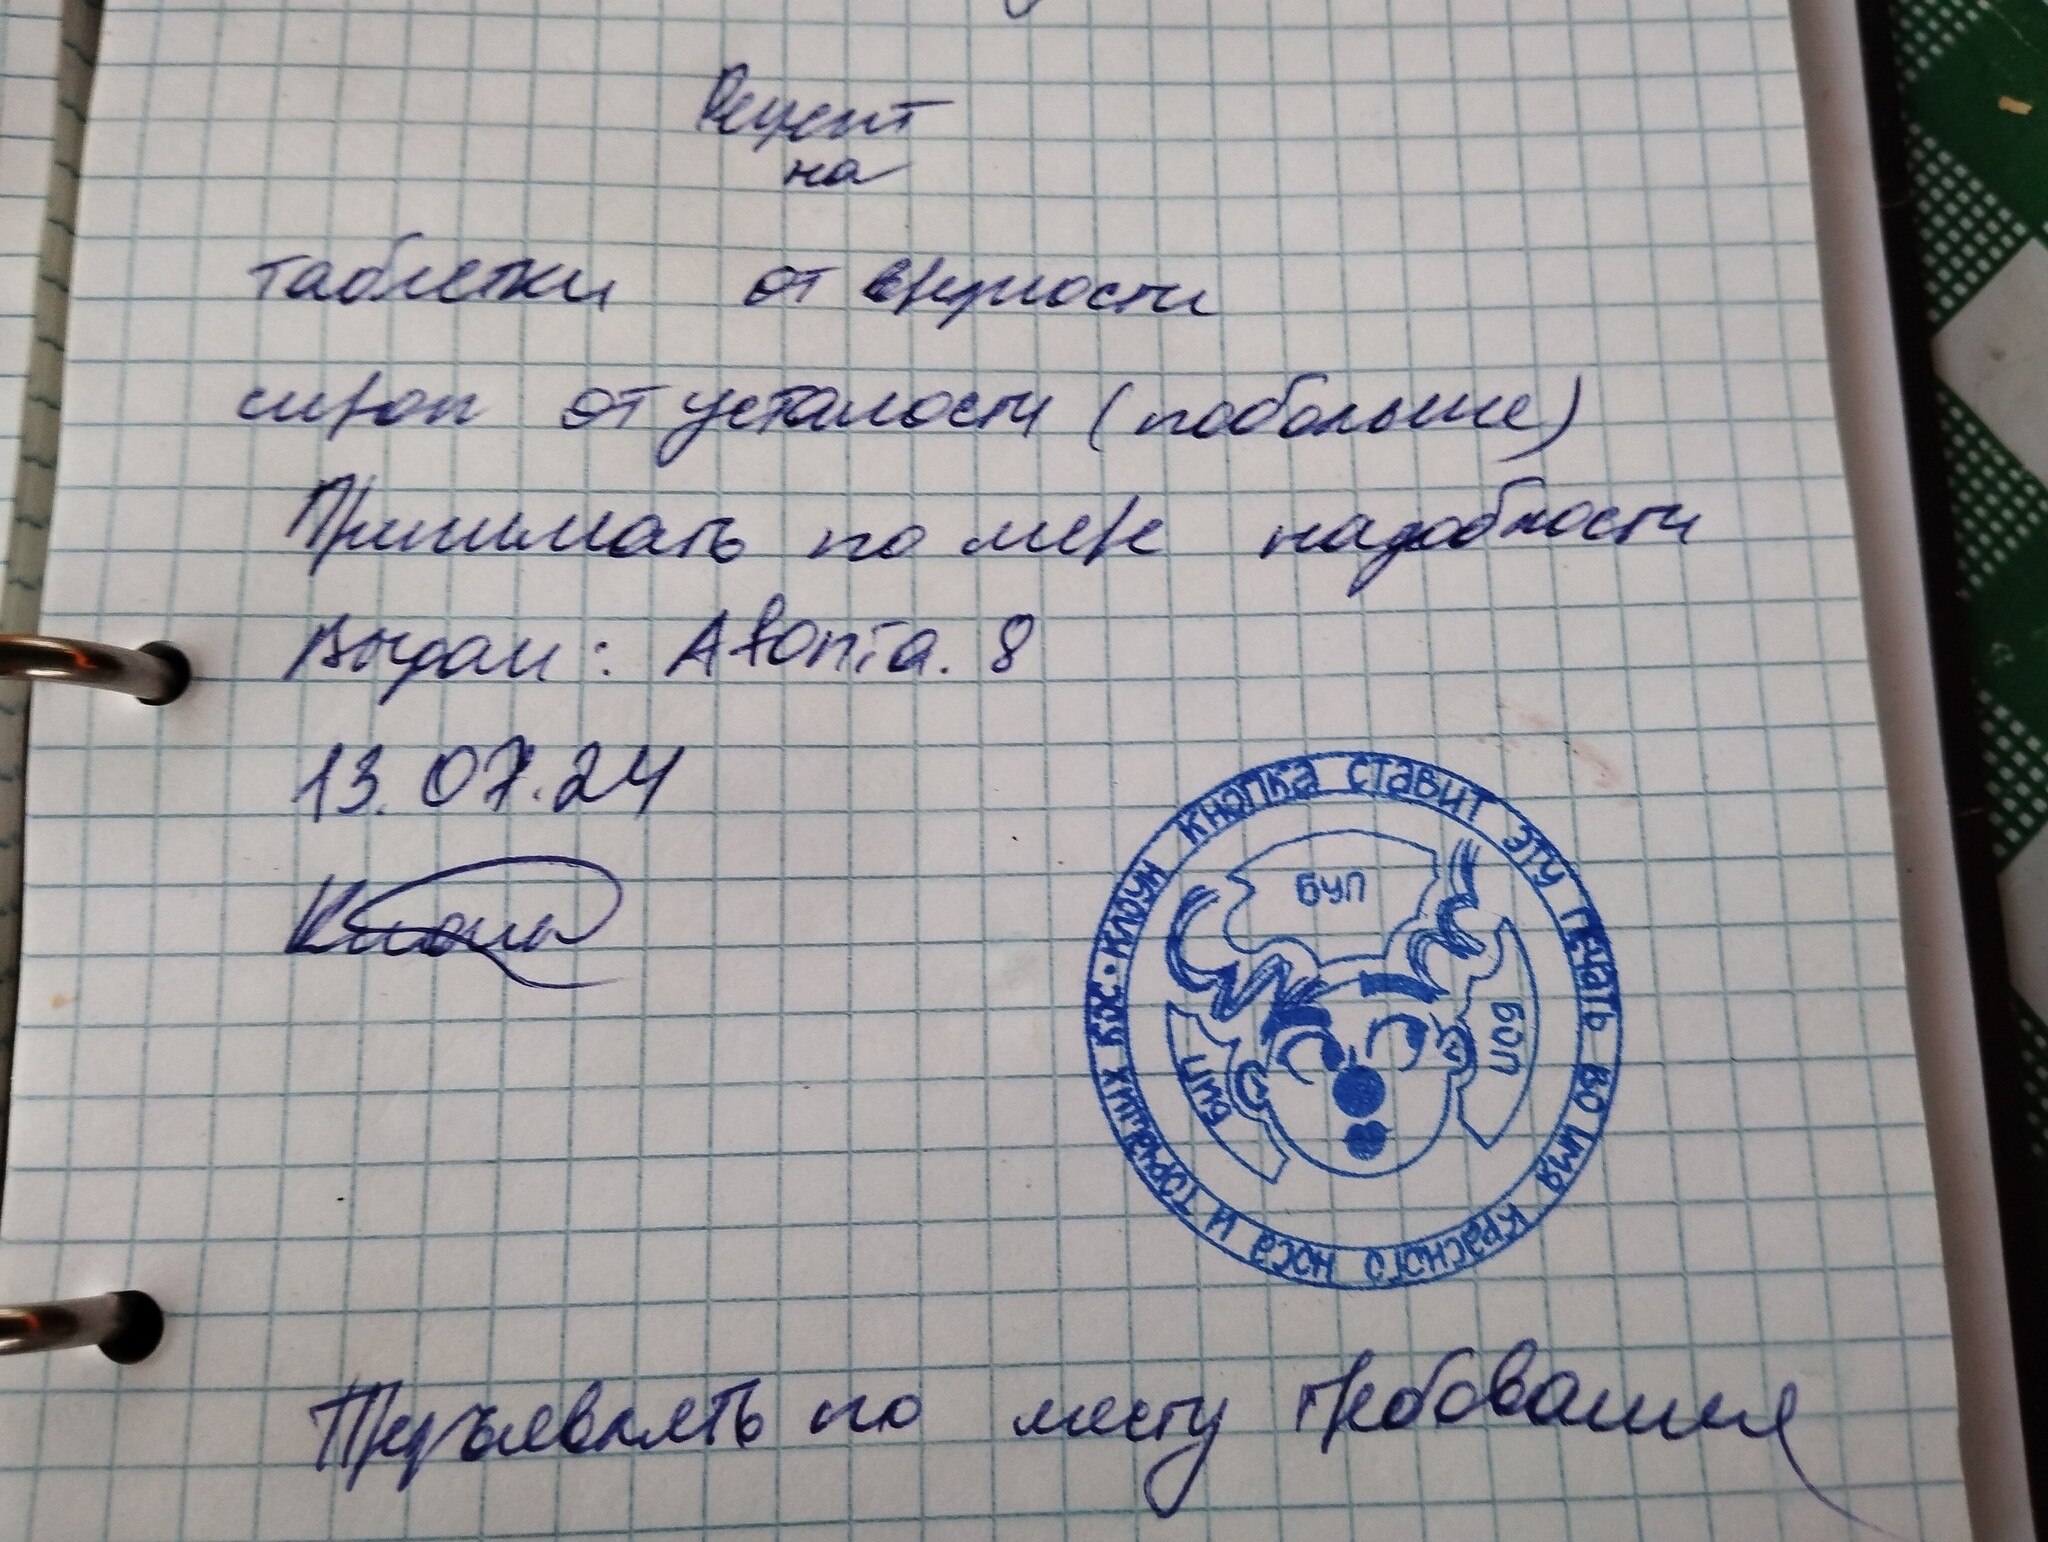 Рецепт
на
таблетки от вредности
сироп от усталости (побольше)
Принимать по мере надобности
Выдан: Afonia. 8
13.07.24
Кнопа
КЛОУН КНОПКА СТАВИТ ЭТУ ПЕЧАТЬ ВО ИМЯ КРАСНОГО НОСА И ТОРЧАЩИХ КОС •
БУП
БОП
БИП
Предъевлять по месту требования